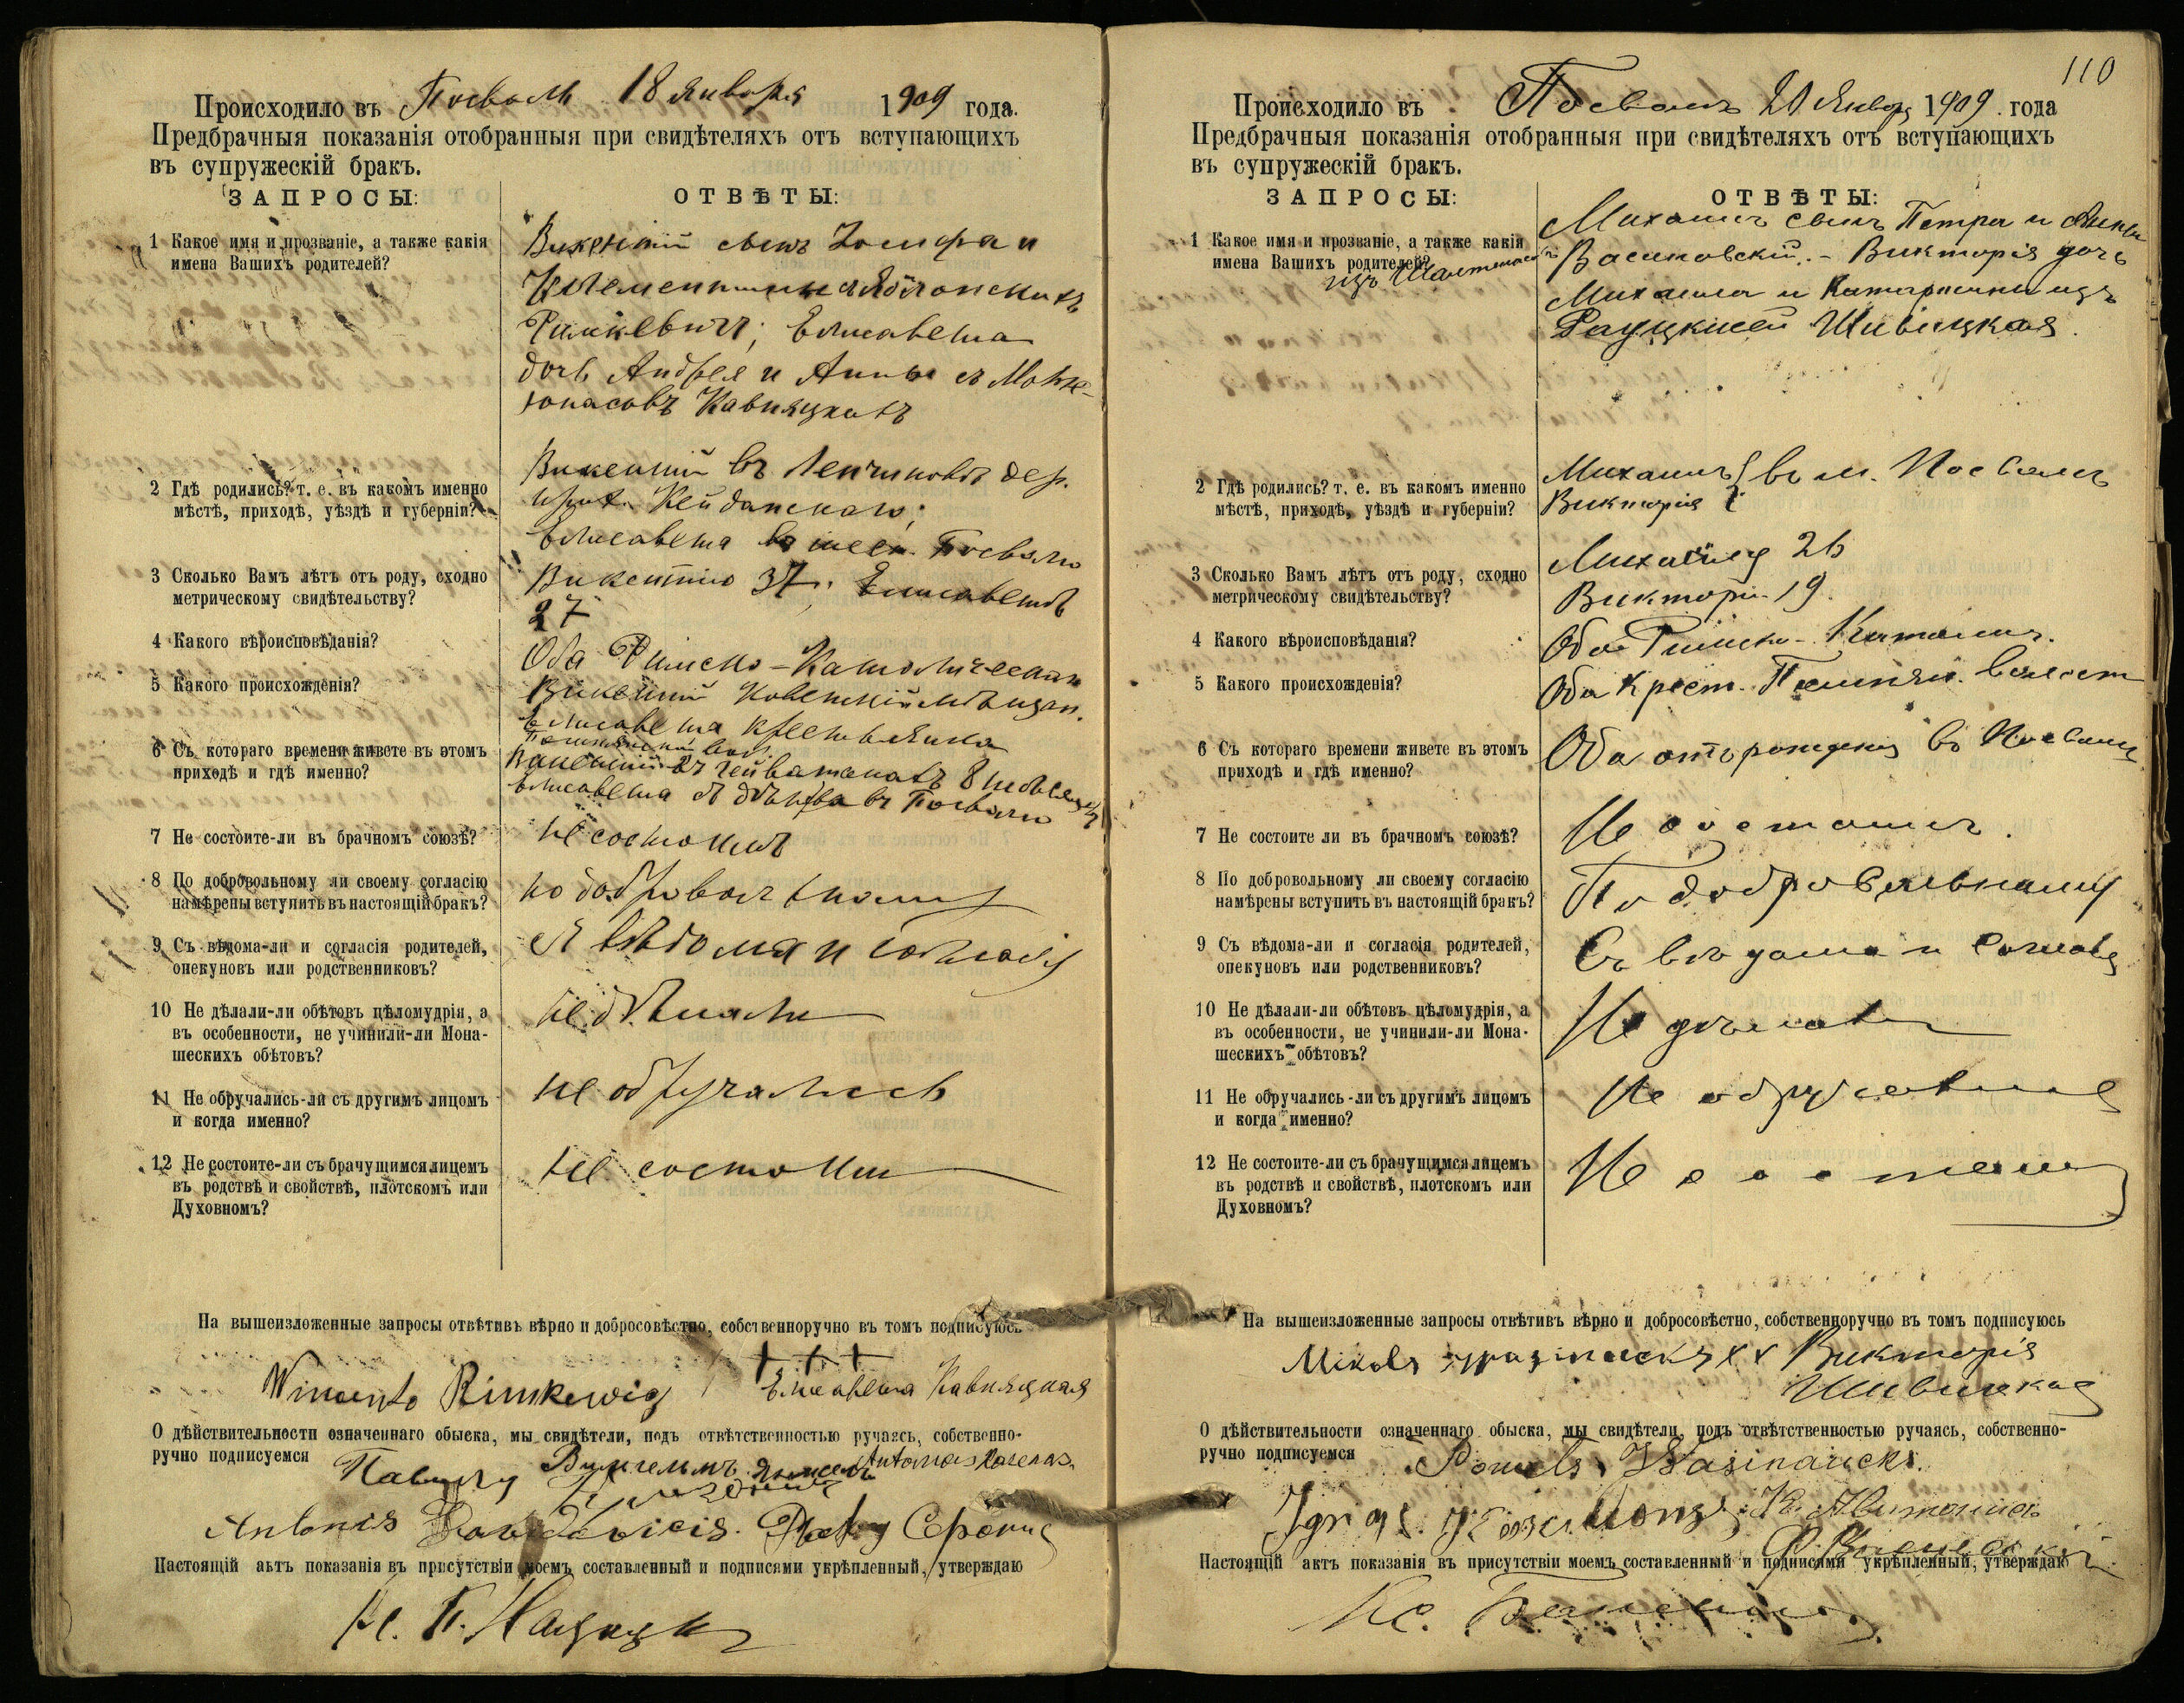 Происходило въ Посвол 18 Января 1909 года.
Предбрачныя показанія отобранныя при свидѣтеляхъ отъ вступающихъ
въ супружескій бракъ.
ЗАПРОСЫ:
ОТВѢТЫ:
1 Какое имя и прозваніе, а также какія
имена Вашихъ родителей?
Викентій сынъ Іосифа и
Римкевичъ; Елисавета
дочь Андрея и Анны
2 Гдѣ родились? т. е. въ какомъ именно
мѣстѣ, приходѣ, уѣздѣ и губерніи?
Викентій въ дер.
прих. Кейданскаго;
Елисавета въ
3 Сколько Вамъ лѣтъ отъ роду, сходно
метрическому свидѣтельству?
Викентію 37; Елисаветѣ
27
4 Какого вѣроисповѣданія?
Оба Римско-Католическаго
5 Какого происхожденія?
Викентій Ковенскій мѣщан.
Елисавета крестьянка
6 Съ котораго времени живете въ этомъ
приходѣ и гдѣ именно?
Викентій въ 8 мѣсяцевъ
Елисавета съ дѣтства въ
7 Не состоите-ли въ брачномъ союзѣ?
не состоимъ
8 По добровольному ли своему согласію
намѣрены вступить въ настоящій бракъ?
по добровольному
9 Съ вѣдома-ли и согласія родителей,
опекуновъ или родственниковъ?
съ вѣдома и согласія
10 Не дѣлали-ли обѣтовъ цѣломудрія, а
въ особенности, не учинили-ли Мона-
шескихъ обѣтовъ?
не дѣлали
11 Не обручались-ли съ другимъ лицомъ
и когда именно?
не обручались
12 Не состоите-ли съ брачущимся лицемъ
въ родствѣ и свойствѣ, плотскомъ или
Духовномъ?
не состоим
На вышеизложенные запросы отвѣтивъ вѣрно и добросовѣстно, собственноручно въ томъ подписуюсь
+++
Wincento Rimkewicz Елисавета
О дѣйствительности означеннаго обыска, мы свидѣтели, подъ отвѣтственностью ручаясь, собственно-
ручно подписуемся
Antonis
Настоящій актъ показанія въ присутствіи моемъ составленный и подписями укрѣпленный, утверждаю
110
Происходило въ Посвол 20 Январ 1909 года
Предбрачныя показанія отобранныя при свидѣтеляхъ отъ вступающихъ
въ супружескій бракъ.
ЗАПРОСЫ:
ОТВѢТЫ:
1 Какое имя и прозваніе, а также какія
имена Вашихъ родителей?
Михаилъ сынъ Петра и Анны
изъ
Васиновскій. - Викторія дочь
Михаила и Катарины изъ
Шивицкая.
2 Гдѣ родились? т. е. въ какомъ именно
мѣстѣ, приходѣ, уѣздѣ и губерніи?
Михаилъ } въ м. Посволь
Викторія
3 Сколько Вамъ лѣтъ отъ роду, сходно
метрическому свидѣтельству?
Михаилу 26
Викторіи 19.
4 Какого вѣроисповѣданія?
Оба Римско-Католич.
5 Какого происхожденія?
Оба крест. волост
6 Съ котораго времени живете въ этомъ
приходѣ и гдѣ именно?
Оба отъ рожденія въ Посволи
7 Не состоите ли въ брачномъ союзѣ?
Не состоимъ.
8 По добровольному ли своему согласію
намѣрены вступить въ настоящій бракъ?
По добровольному
9 Съ вѣдома-ли и согласія родителей,
опекуновъ или родственниковъ?
Съ вѣдома и согласія
10 Не дѣлали-ли обѣтовъ цѣломудрія, а
въ особенности, не учинили-ли Мона-
шескихъ обѣтовъ?
Не дѣлали
11 Не обручались-ли съ другимъ лицомъ
и когда именно?
Не обручались
12 Не состоите-ли съ брачущимся лицемъ
въ родствѣ и свойствѣ, плотскомъ или
Духовномъ?
Не состоим
На вышеизложенные запросы отвѣтивъ вѣрно и добросовѣстно, собственноручно въ томъ подписуюсь
Викторія
Шивицкая
О дѣйствительности означеннаго обыска, мы свидѣтели, подъ отвѣтственностью ручаясь, собственно-
ручно подписуемся
Настоящій актъ показанія въ присутствіи моемъ составленный и подписями укрѣпленный, утверждаю